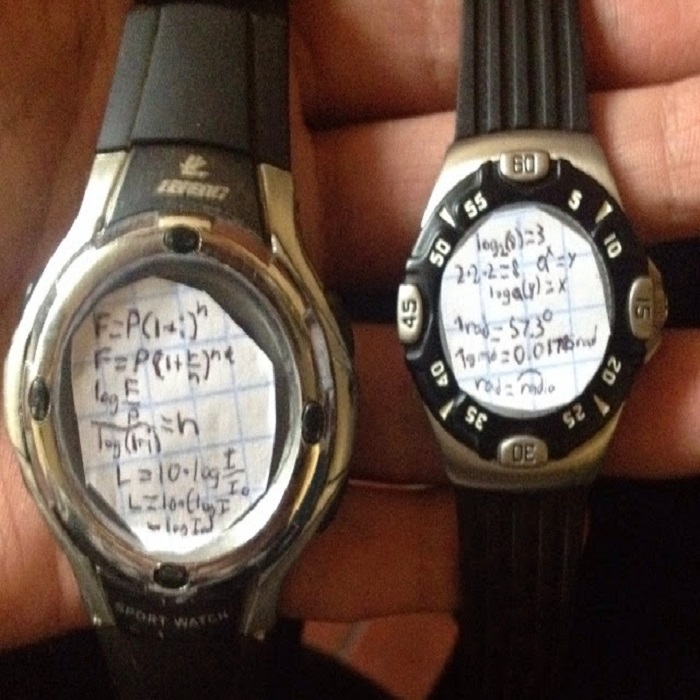 LORENZ
F=P(1+i)^n
F=P(1+r/n)^nt
log F/P
log(1+i) = n
L=10·log I/I₀
L=10·(log I
-log I₀)
SPORT WATCH
60
5
10
15
20
25
30
35
40
45
50
55
log₂(8)=3
2·2·2=8 a^x=y
logₐ(y)=x
1rad=57.3°
=0.017
rad=radio